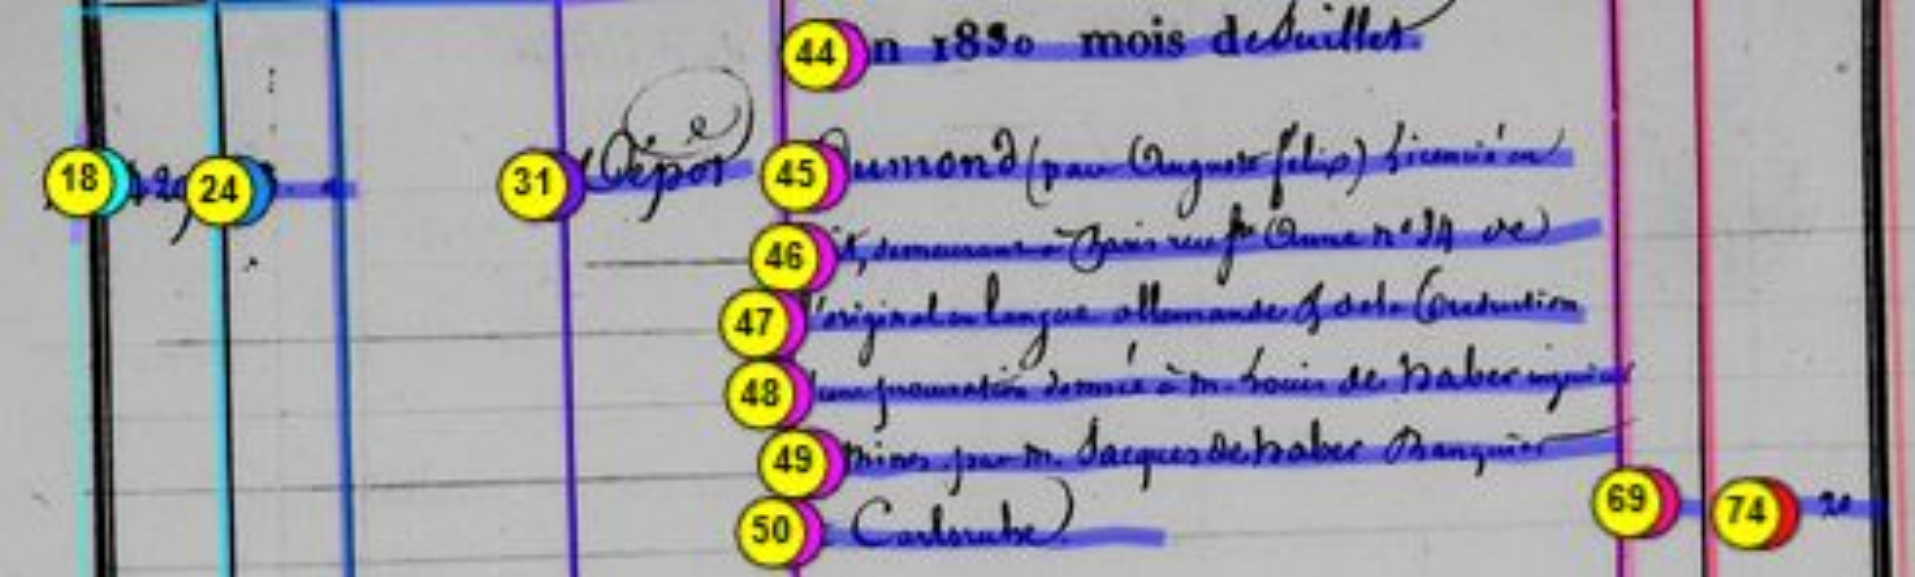 44 n 1830 mois de Juillet
18 24 31 Dépôt 45 Dumond (par Auguste félix) Licencié en
46 t, demeurant à Paris rue Ste Anne nº 34 de
47 l'original en langue allemande & de la traduction
48 d'une procuration donnée à M. Louis de Haber ingénieur
49 mines par M. Jacques de Haber Banquier
50 Carlsruhe
69 74 20